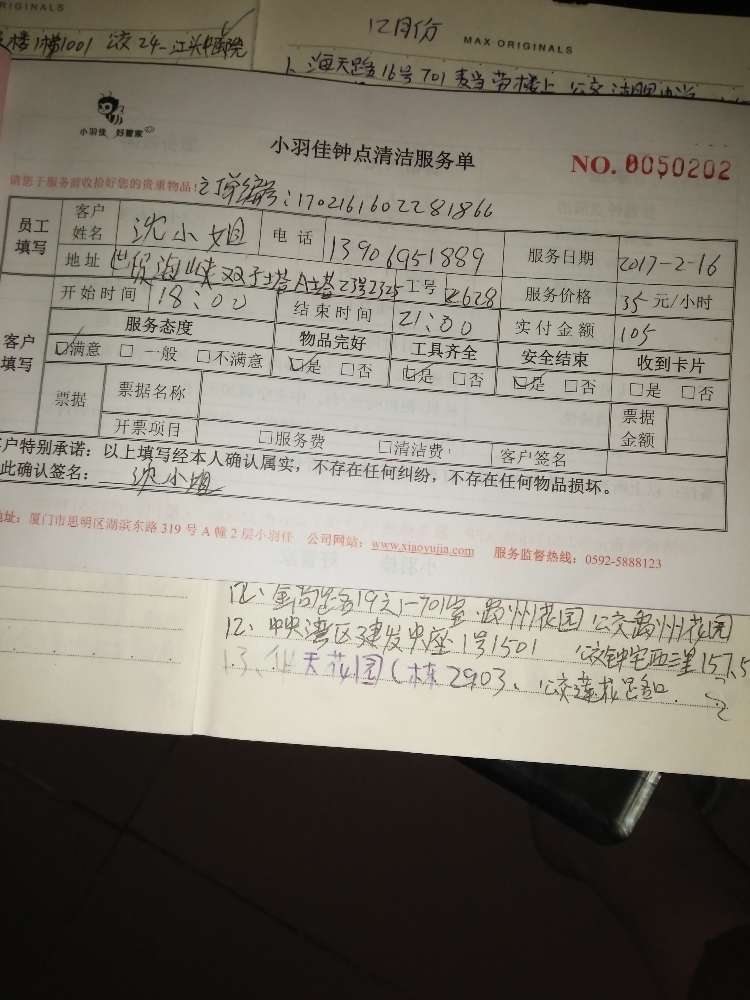 RIGINALS
12月份
MAX ORIGINALS
楼1梯1001 公交24-江头中医院
1、海天路16号701麦当劳楼上 公交
小羽佳 好管家
小羽佳钟点清洁服务单
NO. 0050202
请您于服务前收拾好您的贵重物品!
订单编号:1702161602281866
员工填写
客户姓名 沈小姐 电话 13906951889 服务日期 2017-2-16
地址 世贸海峡双子塔A塔23号2325 工号 2628 服务价格 35元/小时
客户填写
开始时间 18:00 结束时间 21:00 实付金额 105
服务态度 物品完好 工具齐全 安全结束 收到卡片
☑满意 □一般 □不满意 ☑是 □否 ☑是 □否 ☑是 □否 □是 □否
票据 票据名称 票据金额
开票项目 □服务费 □清洁费 客户签名
客户特别承诺:以上填写经本人确认属实,不存在任何纠纷,不存在任何物品损坏。
此确认签名: 沈小姐
地址:厦门市思明区湖滨东路 319 号 A 幢 2 层小羽佳 公司网站:www.xiaoyujia.com 服务监督热线:0592-5888123
金尚路 701室 禹州花园 公交禹州花园
12、中央湾区建发央座1号1501 公交钟宅西三里157、5
13、天花园(栋2903、公交莲花路口